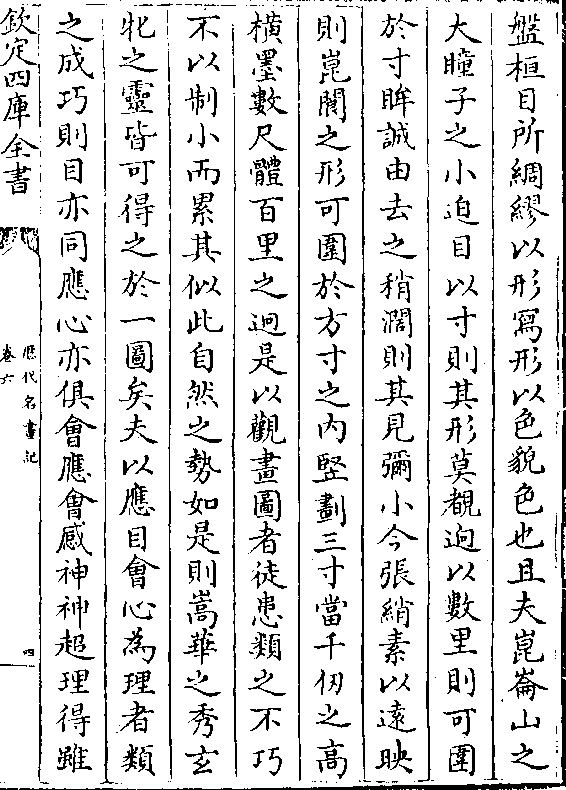 盤桓目所綢繆以形寫形以色貌色也且夫崑崙山之
大瞳子之小迫目以寸則其形莫覩迥以數里則可圍
於寸眸誠由去之稍濶則其見彌小今張綃素以遠映
則崑閬之形可圍於方寸之内竪劃三寸當千仞之高
橫墨數尺體百里之迥是以觀畫圖者徒患類之不巧
不以制小而累其似此自然之勢如是則嵩華之秀玄
牝之靈皆可得之於一圖矣夫以應目會心為理者類
之成巧則目亦同應心亦俱會應會感神神超理得雖
欽定四庫全書
歷代名畫記
卷六
四